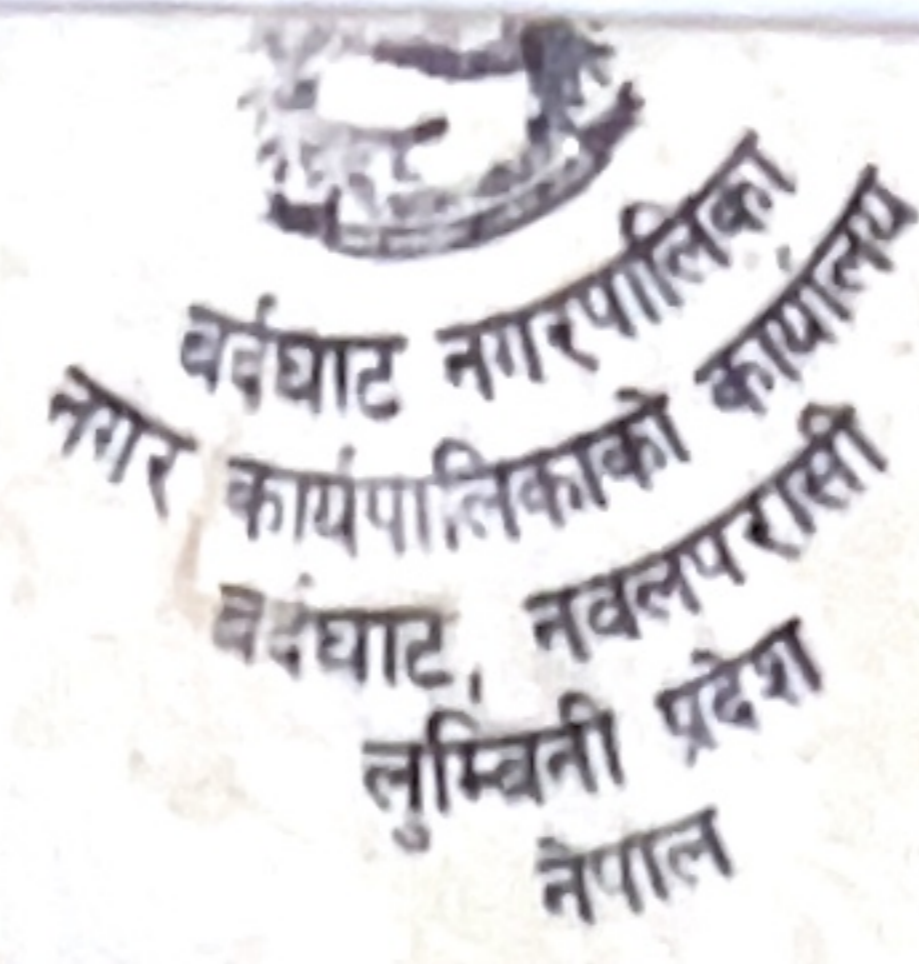 बर्दघाट नगरपालिका
नगर कार्यपालिकाको कार्यालय
बर्दघाट, नवलपरासी
लुम्बिनी प्रदेश
नेपाल